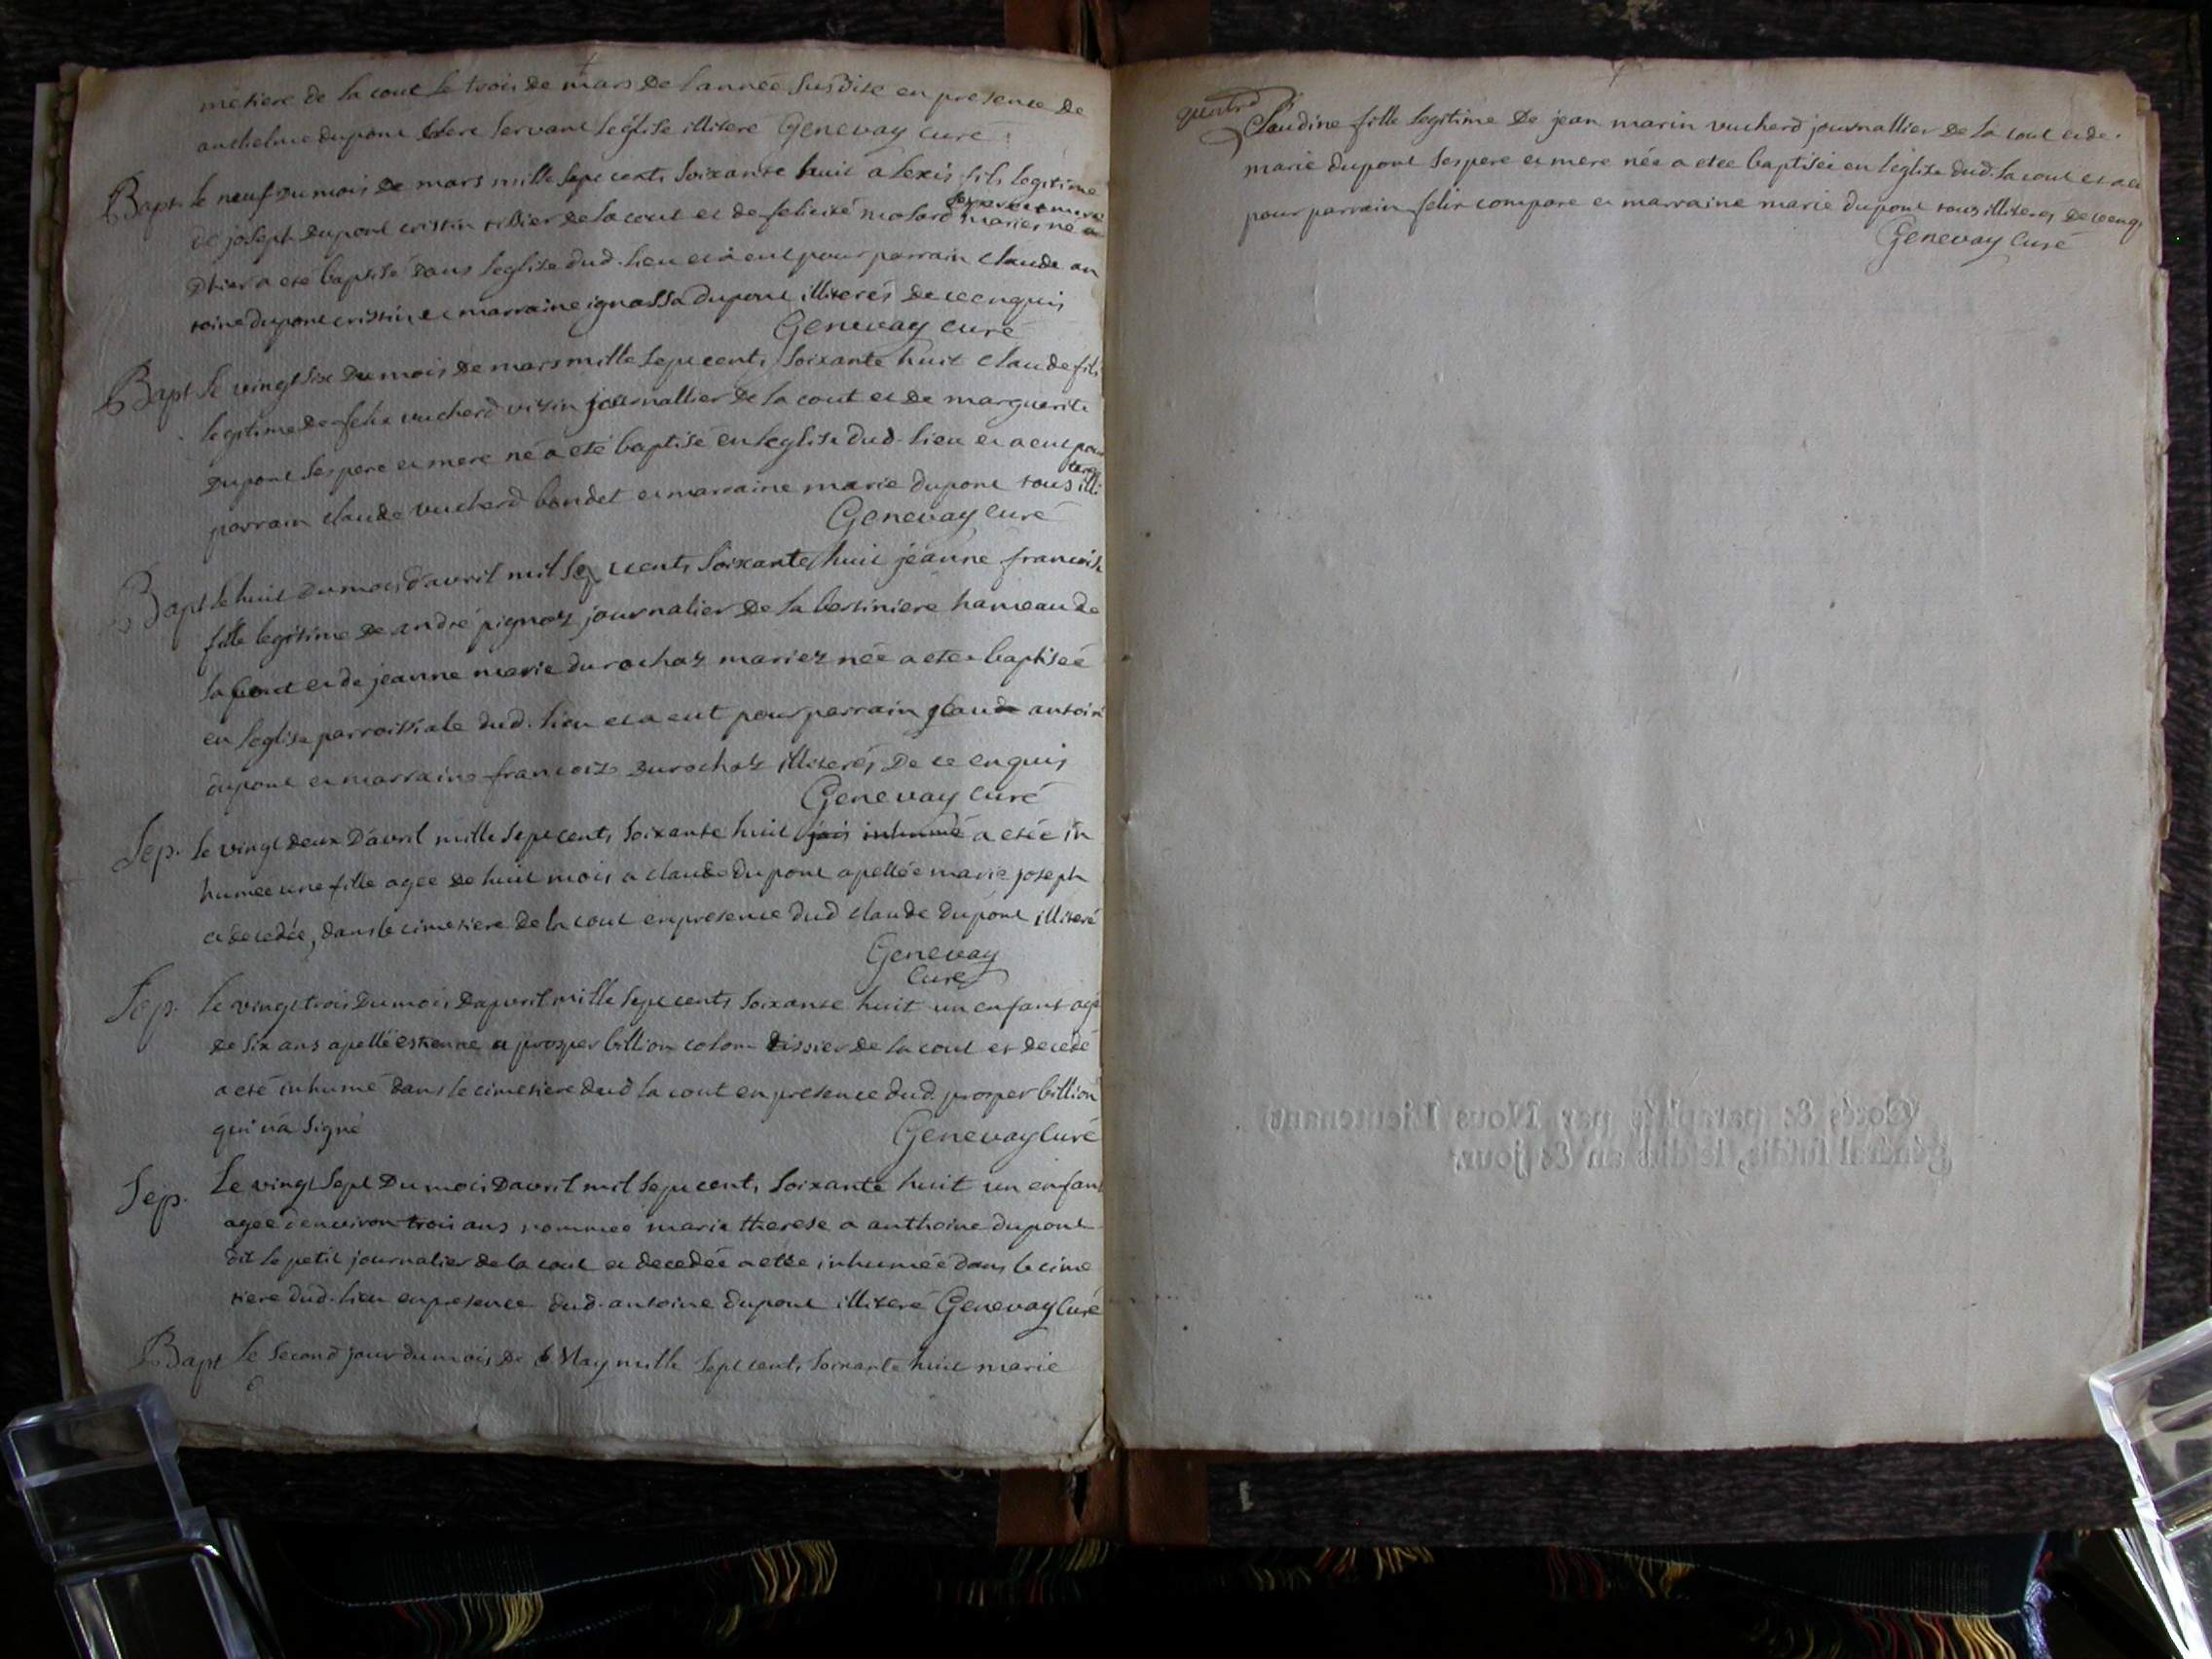 metiere de la cout le trois de mars de l'année susdite en presence de
anthelme dupont clerc servant leglise illitere Genevay curé
Bapt. le neuf du mois de mars mille sept cents soixante huit alexis fils legitime
ses pere et mere
de joseph dupont cristin tissier de la cout et de felicité molard mariez né a
d'hier a eté baptisé dans leglise dud. lieu et a eut pour parrain claude an
toine dupont cristin et marraine ignassa dupont illiterés de ce enquis
Genevay curé
Bapt le vingt six du mois de mars mille sept cents soixante huit claude fils
legitime de felix vucherd vizin journallier de la cout et de marguerite
dupont ses pere et mere né a eté baptisé en leglise dud. lieu et a eut pour
parrain claude vucherd bondet et marraine marie dupont tous illi
teres
Genevay Curé
Bapt le huit du mois d'avril mil sept cents soixante huit jeanne francoise
fille legitime de andré pignoz journalier de la bertiniere hameau de
la cout et de jeanne marie durochaz mariez née a etée baptiseé
en leglise parroissiale dud. lieu et a eut pour parrain claude antoine
dupont et marraine francoize durochaz illiterés de ce enquis
Genevay Curé
Sep. le vingt deux d'avril mille sept cents soixante huit jais inhumé a etée in
humee une fille agee de huit mois a claude dupont apellée marie joseph
et decedée, dans le cimetiere de la cout en presence dud claude dupont illiteré
Genevay
Curé
Sep. le vingt trois du mois d'apvril mille sept cents soixante huit un enfant agé
de six ans apellé estienne a prosper billion colom tissier de la cout et decedé
a eté inhumé dans le cimetiere dud la cout en presence dud. prosper billion
qui n'a signé Genevay Curé
Sep. Le vingt sept du mois d'avril mil sept cents soixante huit un enfant
agée d'environ trois ans nommeé marie therese a anthoine dupont
dit le petit journalier de la cout et decedée a etée inhumée dans le cime
tiere dud. lieu en presence dud. antoine dupont illiteré Genevay Curé
Bapt le second jour du mois de May mille sept cents soixante huit marie
Claudine fille legitime de jean marin vucherd journallier de la cout et de
marie dupont ses pere et mere née a etée baptiseé en leglize dud. la cout et a eu
pour parrain felix compare et marraine marie dupont tous illiterés de ce enq.
Genevay Curé
Cotés & paraphés par Nous Lieutenant
général susdit, lesdits an & jour.